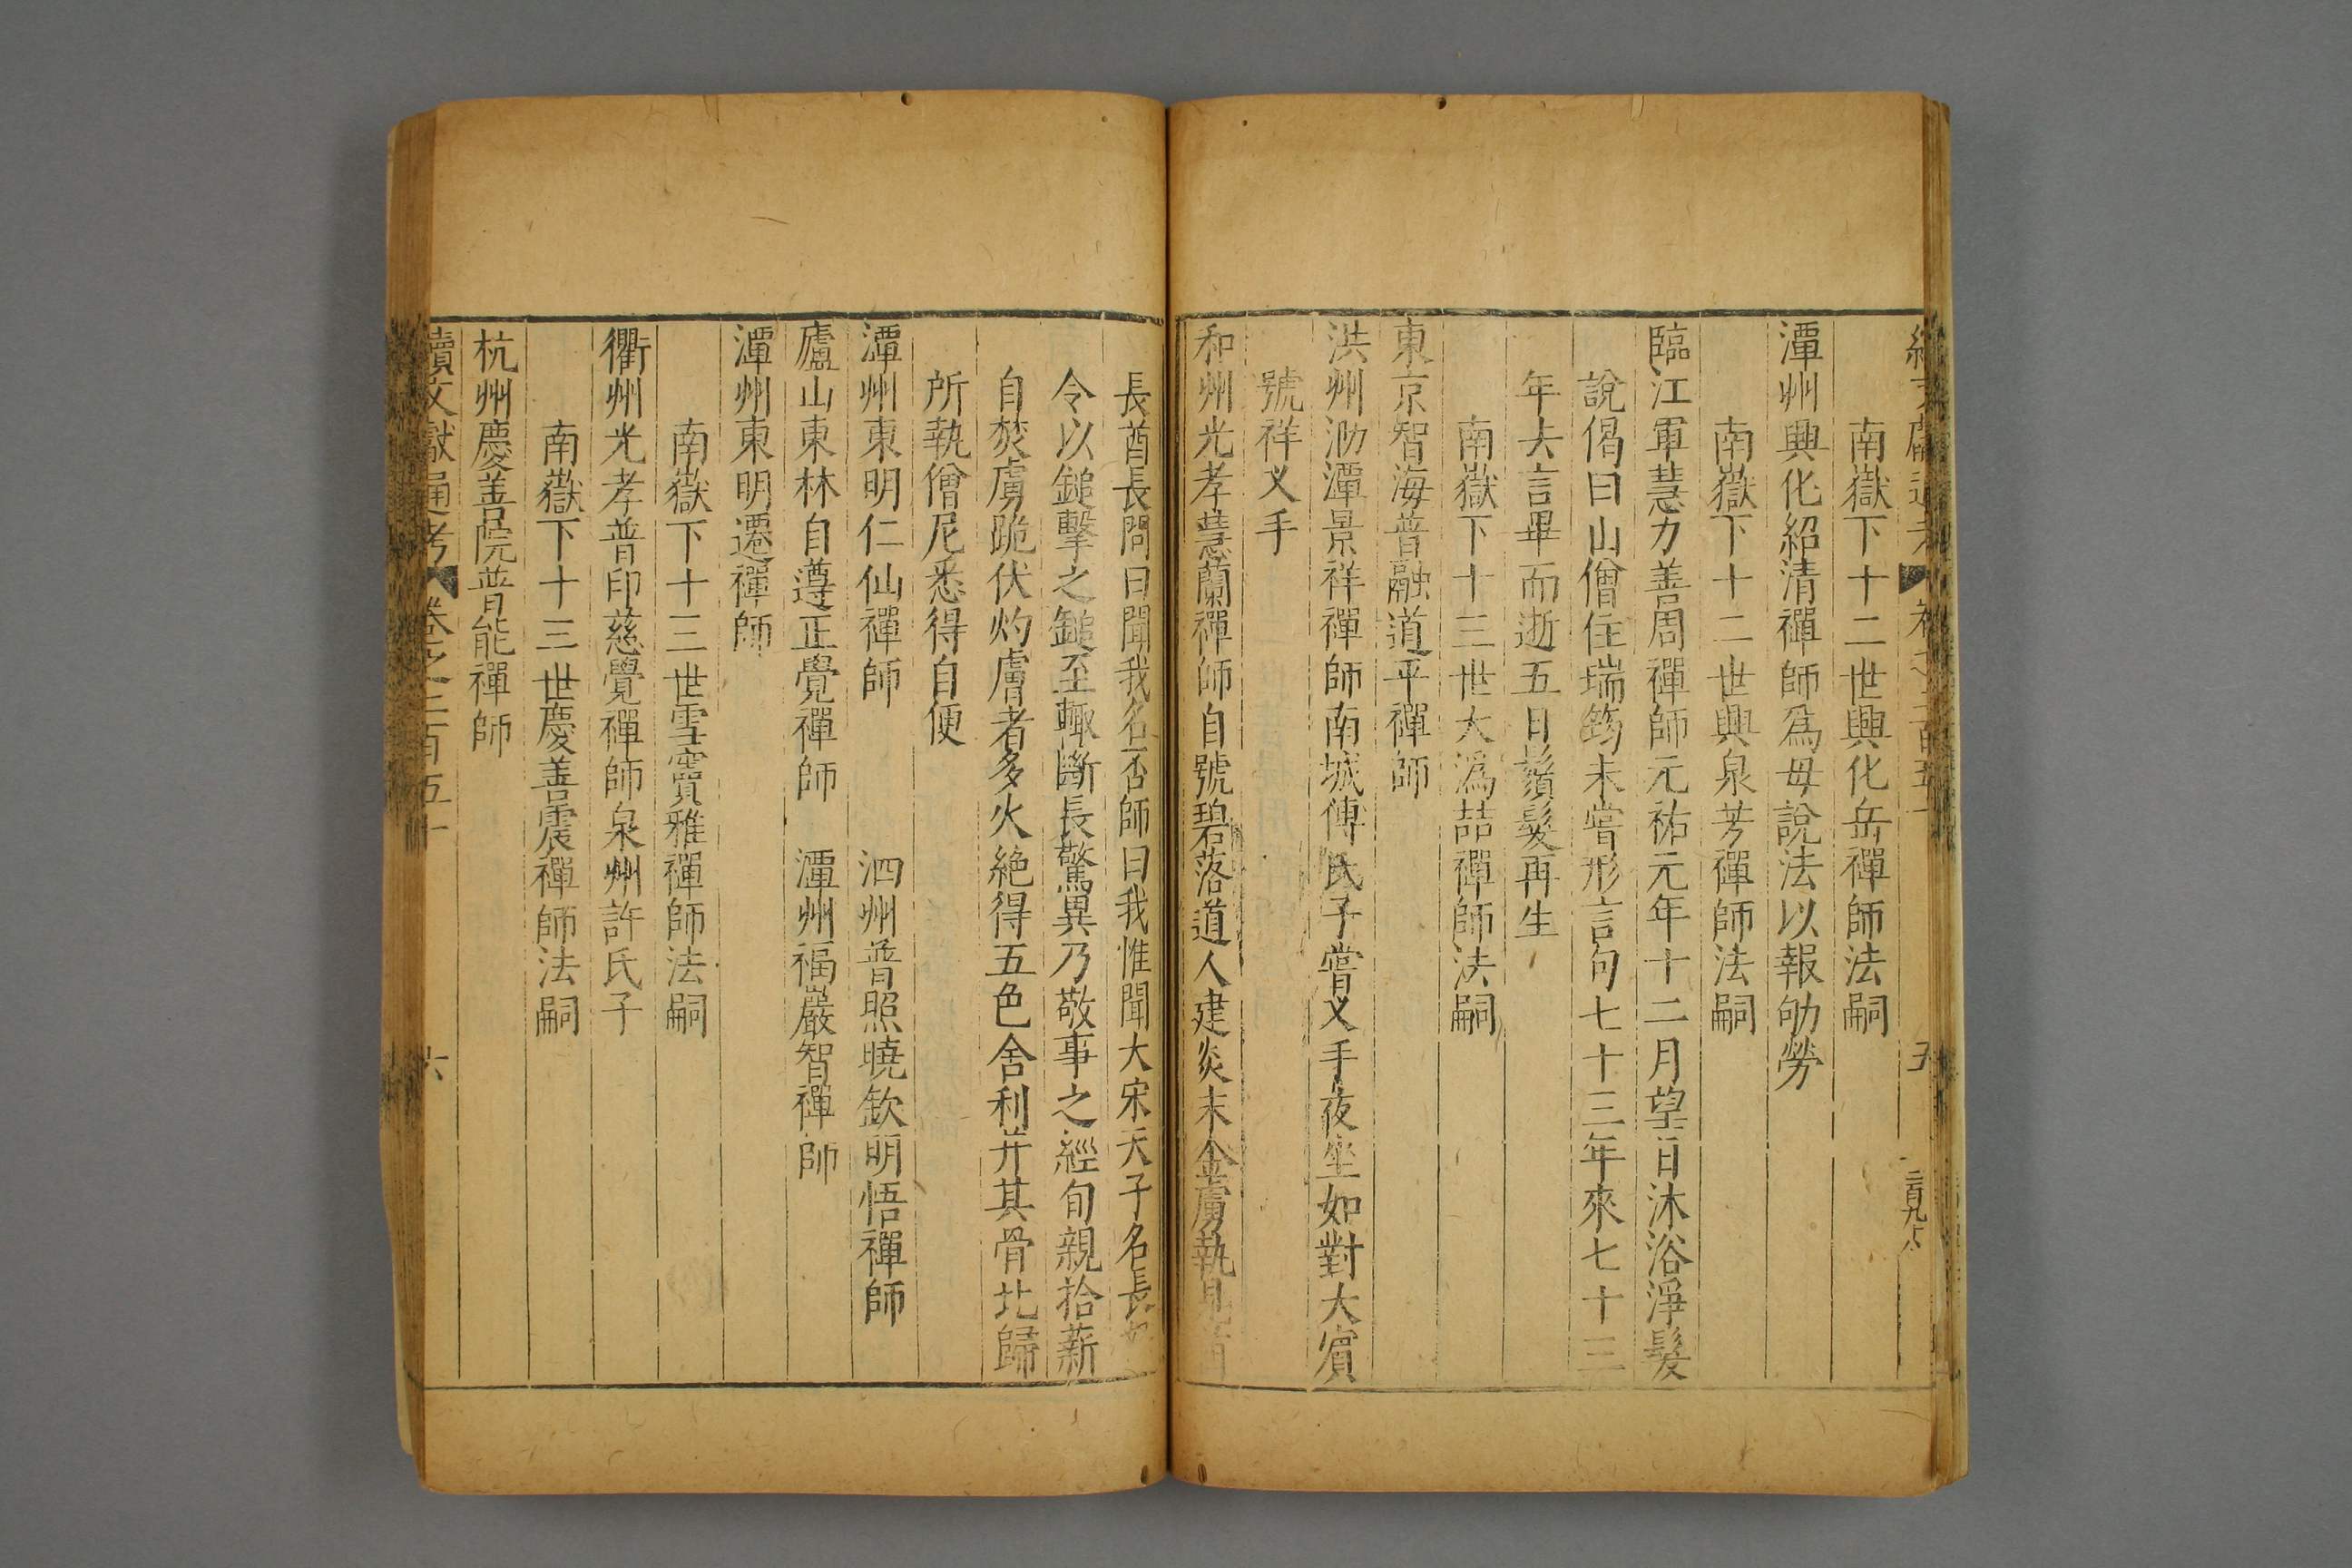 南嶽下十二世興化岳禪師法嗣
潭州興化紹清禪師爲母說法以報劬勞
南嶽下十二世興泉芳禪師法嗣
臨江軍慧力善周禪師元祐元年十二月望日沐浴淨髮
說偈曰山僧住瑞筠未嘗形言句七十三年來七十三
年去言畢而逝五日鬚髮再生
南嶽下十三世大溈喆禪師法嗣
東京智海普融道平禪師
洪州泐潭景祥禪師南城傅氏子嘗叉手夜坐如對大賓
號祥叉手
和州光孝慧蘭禪師自號碧落道人建炎末金虜執見
長酋長問曰聞我名否師曰我惟聞大宋天子名長
令以鎚擊之鎚至輒斷長驚異乃敬事之經旬親拾薪
自焚虜跪伏灼膚者多火絕得五色舍利并其骨北歸
所執僧尼悉得自便
潭州東明仁仙禪師 泗州普照曉欽明悟禪師
廬山東林自遵正覺禪師 潭州福嚴智禪師
潭州東明遷禪師
南嶽下十三世雪竇雅禪師法嗣
衢州光孝普印慈覺禪師泉州許氏子
南嶽下十三世慶善震禪師法嗣
杭州慶善院普能禪師
續文獻通考 卷之二百五十 六